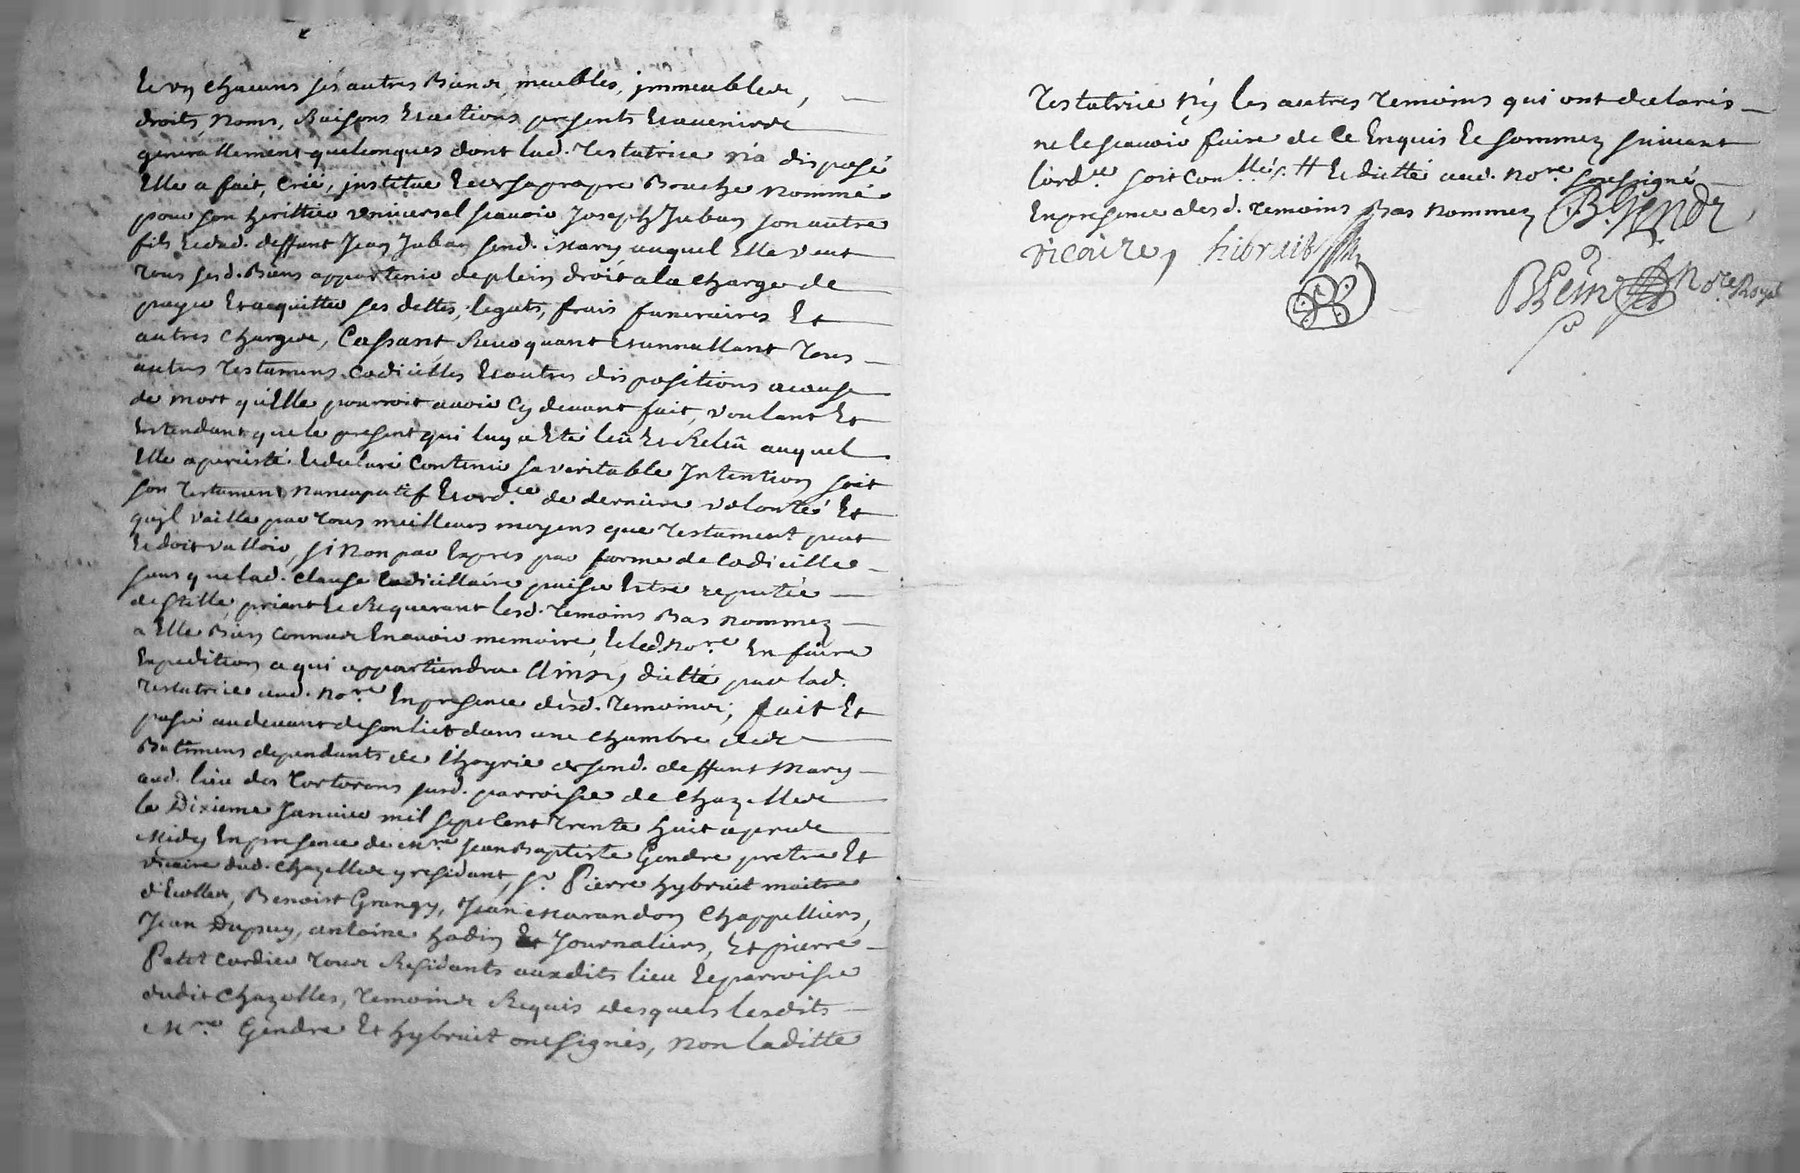 Et en chacuns ses autres Biens, meubles, immeubles,
droits, noms, Raisons Et actions, presents Et avenirs
generallement quelconques dont lad. Testatrice n'a disposé
Elle a fait, créé, institué Et de sa propre Bouche nommé
pour son herittier universel scavoir Joseph Juban son autre
fils Et dud. deffunt Jean Juban send. Mary auquel Elle veut
tous sesd. Biens appartenir de plein droit a la charge de
payer Et acquitter ses dettes, legats, frais funeraires Et
autres charges, Cassant Revoquant Et annullant tous
autres Testamens codicilles Et autres dispositions a cause
de mort qu'Elle pourroit avoir cy devant fait, voulant Et
Entendant que le present qui luy a Eté leû Et Releû auquel
Elle a persisté Et declaré contenir sa veritable Intention soit
son Testament nuncupatif Et ord.ce de derniere volonté Et
qu'jl vaille par tous meilleurs moyens que Testament peut
Et doit valloir, si non par Exprés par forme de Codicille
sans que lad. clause Codicillaire puisse Estre reputée
de stille, priant Et Requerant lesd. Temoins Bas nommez
a Elle Bien connus En avoir memoire, Et led. No.re En faire
Expedition a qui appartiendra Ainsy dicté par lad.
Testatrice aud. No.re En presence desd. Temoins; fait Et
passé au devant de son lict dans une chambre des
Batimens dependants de l'hoyrie de send. deffunt Mary
aud. lieu des Tortorons susd. parroisse de Chazelles
le Dixieme Janvier mil sept Cent Trente huit aprés
Midy En presence de M.re Jean Baptiste Gendre pretre Et
vicaire dud. Chazelles y residant, S.r Pierre hybruit maitre
d'Ecolles, Benoist Grangy, Jean Marandon Chappelliers,
Jean Dupuy, antoine hodin Et Journaliers, Et pierre
Petit cordier tous Residants auxdits lieu Et parroisse
dudit Chazelles, Temoins Requis desquels lesdits
M.re Gendre Et hybruit ont signés, non laditte
Testatrice n'y les autres Temoins qui ont declarés
ne le scavoir faire de ce Enquis Et sommez suivant
l'ord.ce soit con.llé &. H Et dicté aud. No.re soussigné
En presence desd. Temoins Bas nommez B. Gendre
vicaire, hibruit
No.re Royal